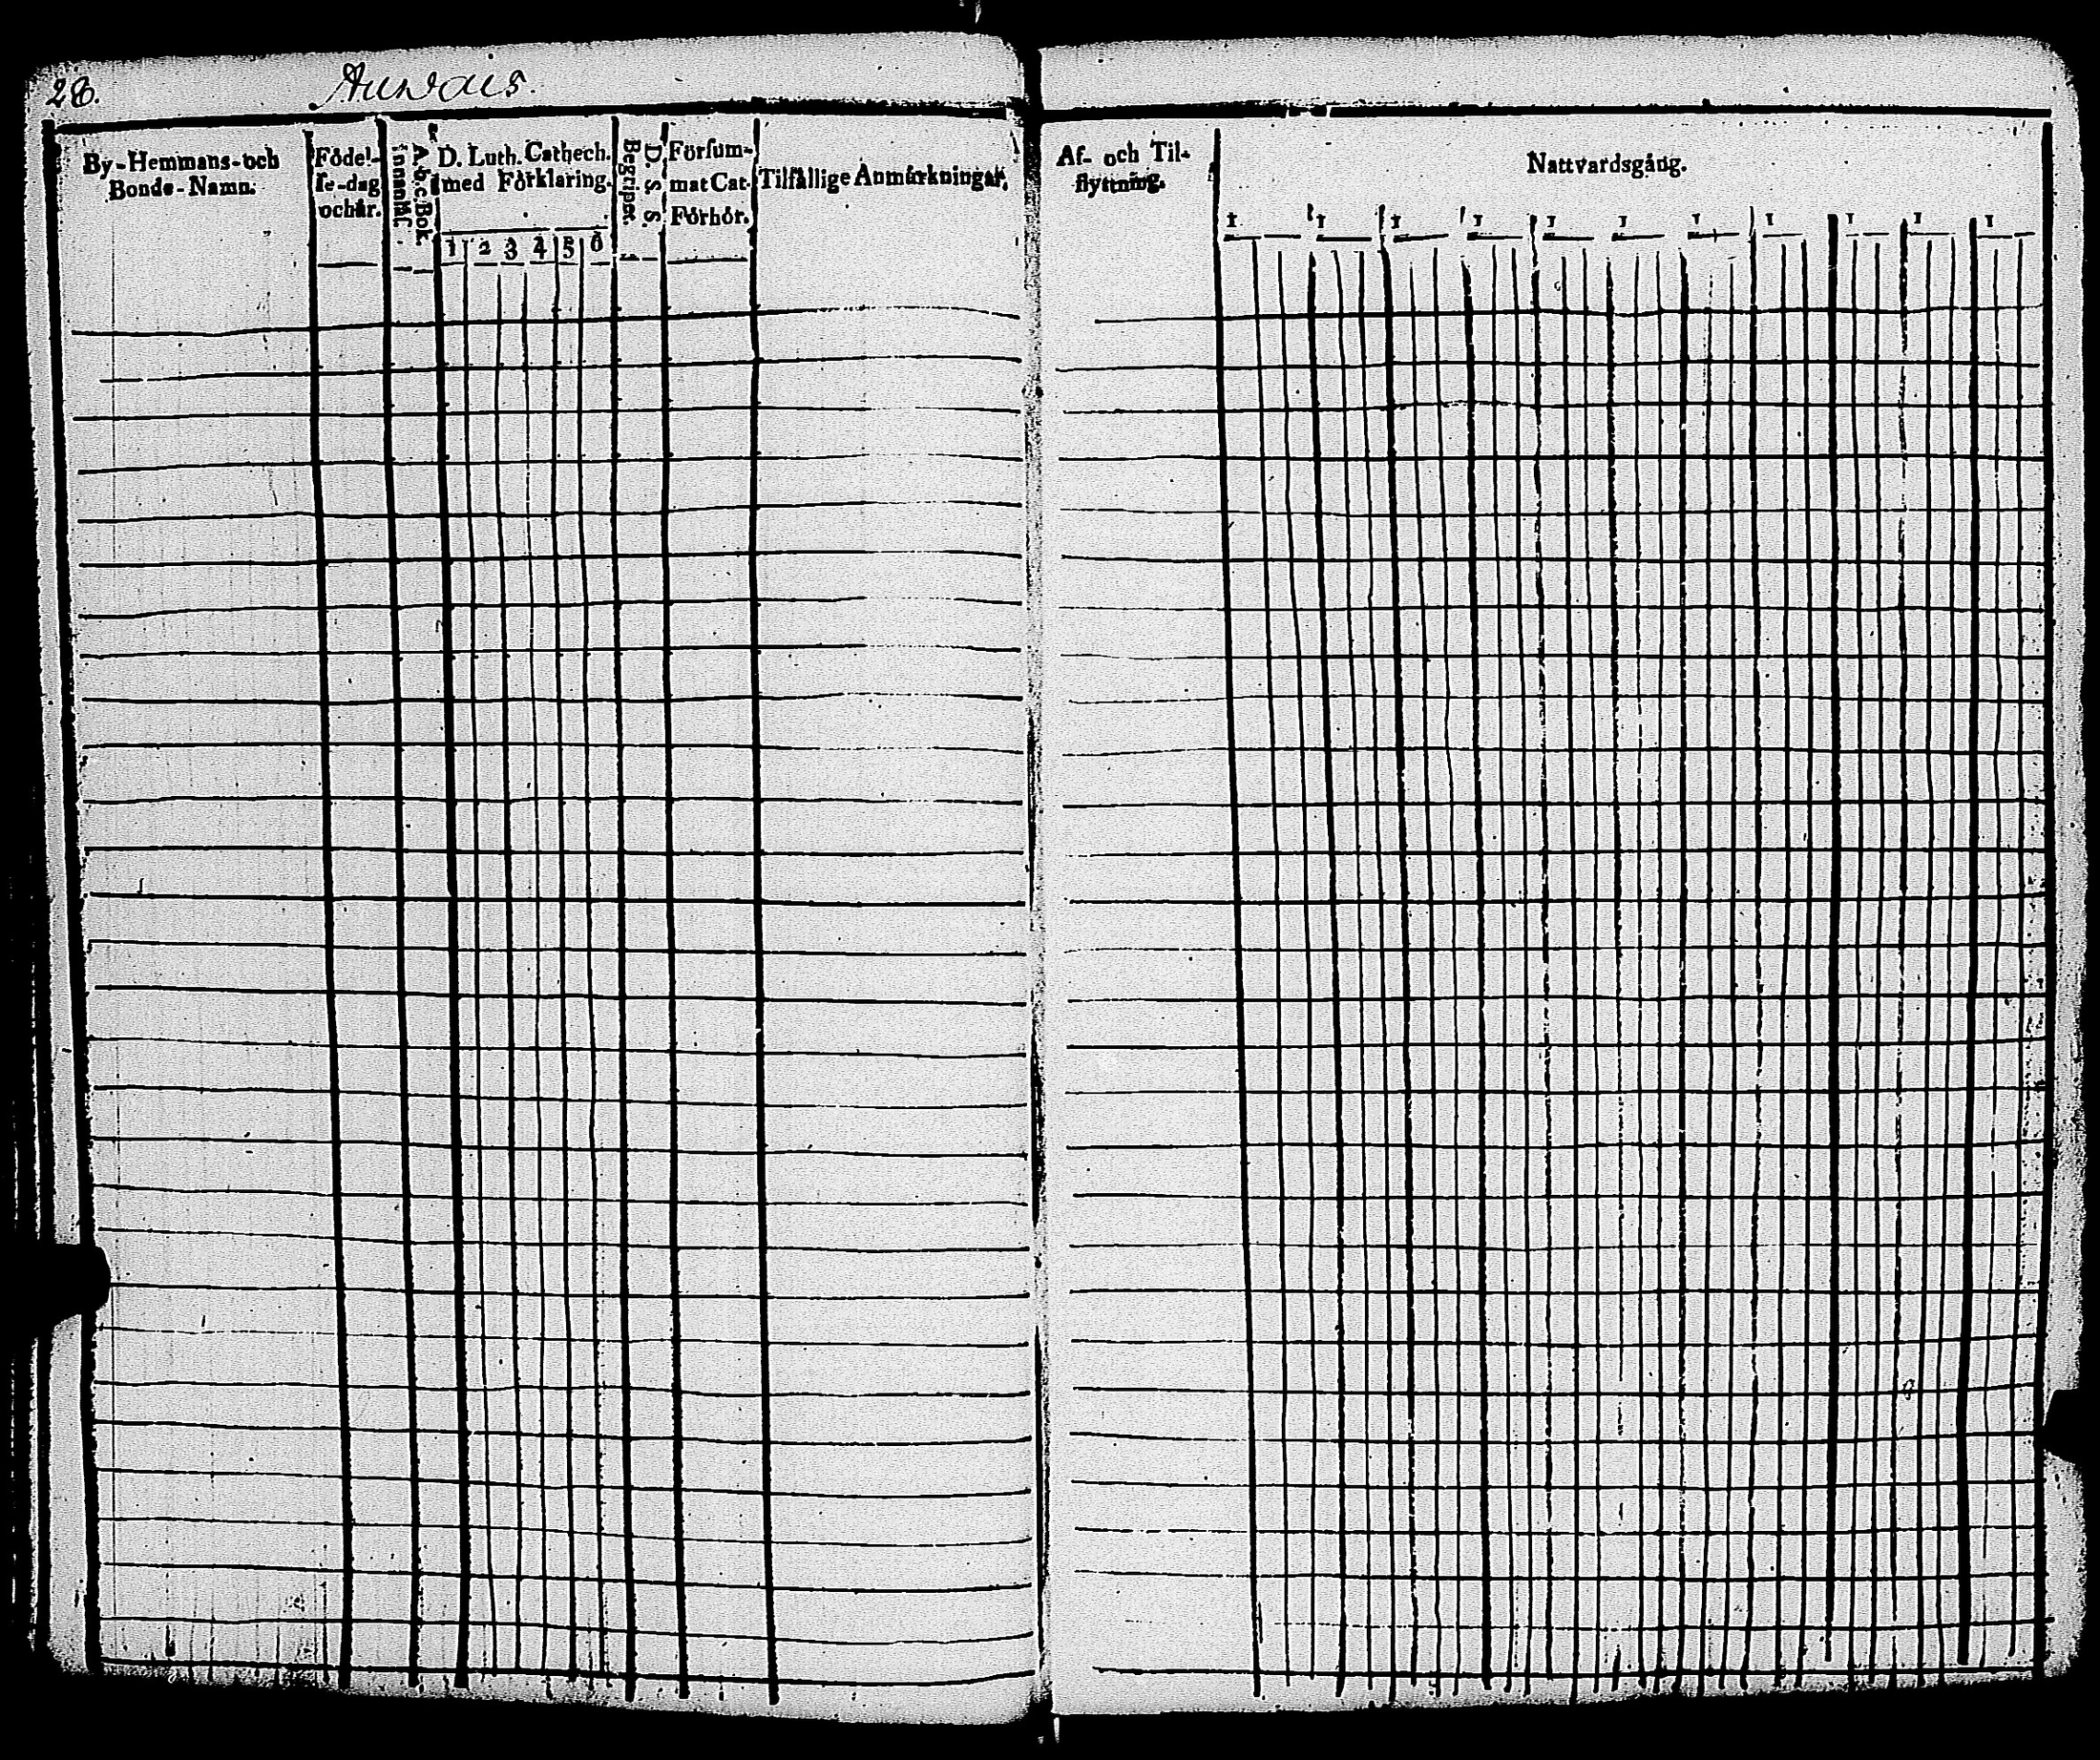 28.
Auvais.
By-Hemmans-och
Bonde-Namn.
Födel-
se-dag
och år.
A.b.c.Bok
innantil.
D. Luth. Cathech.
med Förklaring.
1 2 3 4 5 6
D. S. S.
Begrepet.
Försum-
mat Cat.
Förhör.
Tilfällige Anmärkningar.
Af- och Til-
flyttning.
Nattvardsgång.
1 1 1 1 1 1 1 1 1 1 1